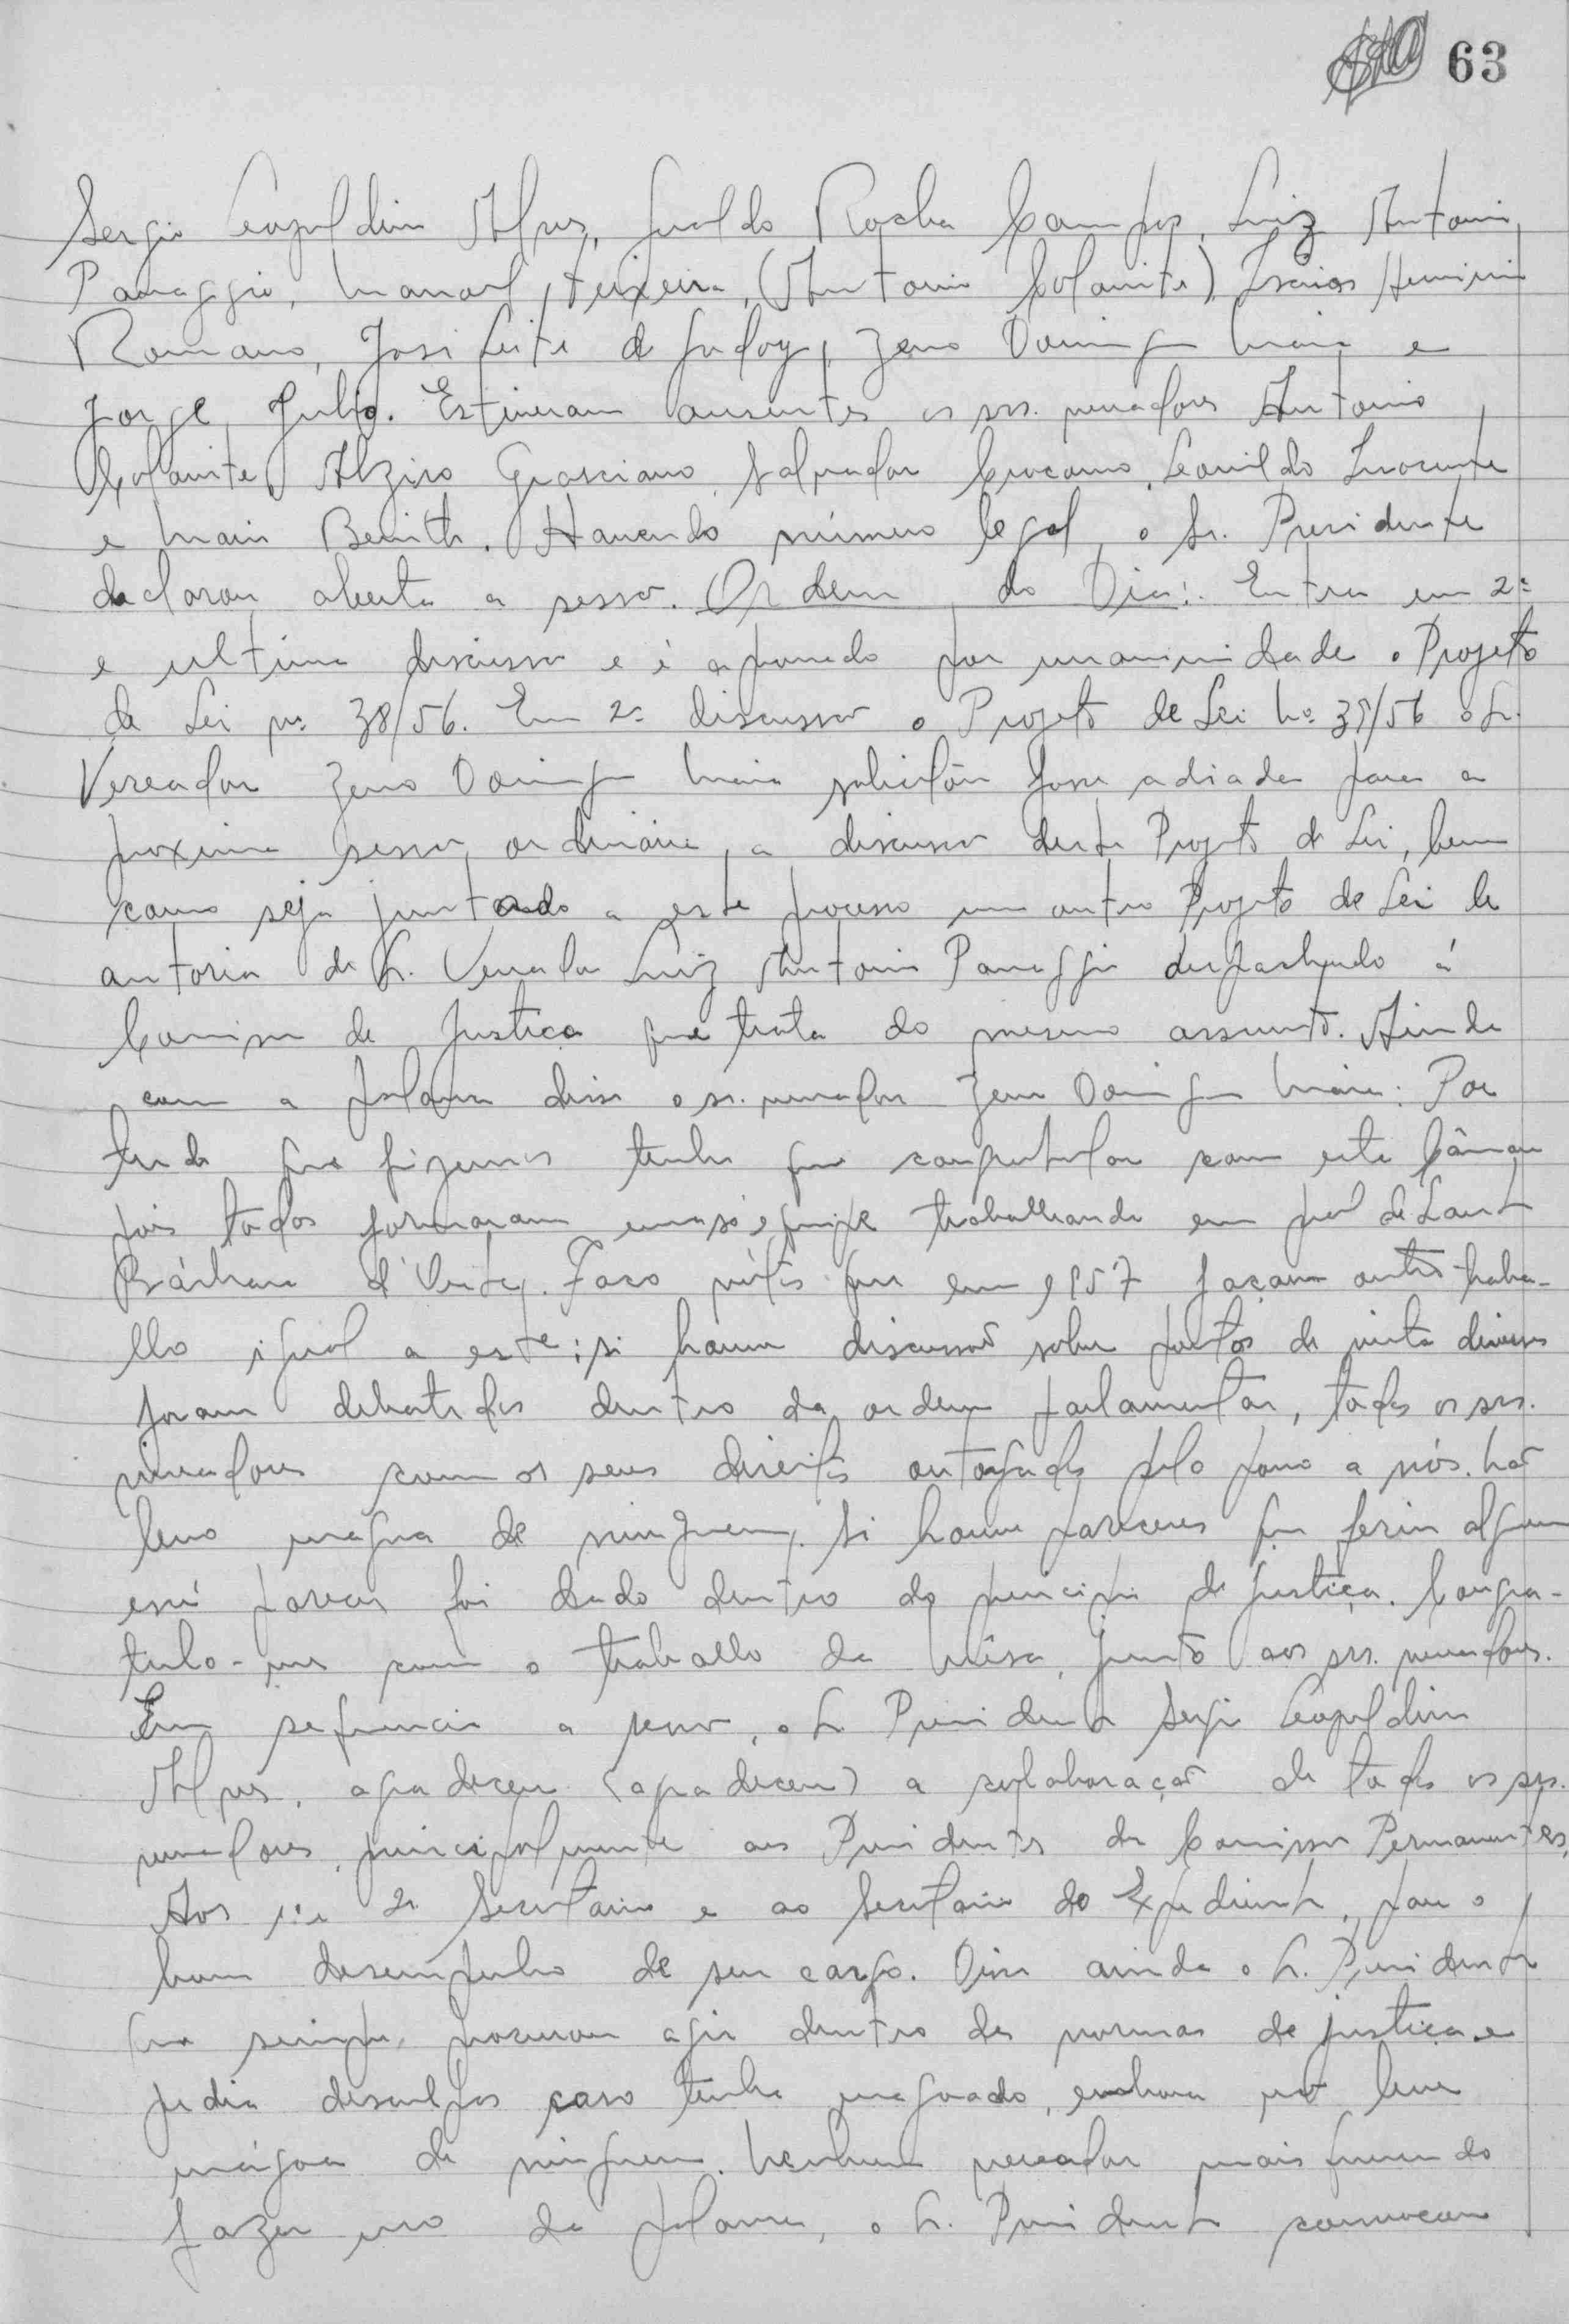 63
Sergio Leopoldino Alves, Geraldo Rocha Campos, Luiz Antonio
Panaggio, Manoel Teixeira, (Antonio Colanite), Isaias Herminio
Romano, José Leite de Godoy, Zeno Domingo Maia e
Jorge Julio. Estiveram ausentes os srs. vereadores Antonio
Colanite, Alziro Grasciano, Salvador Crocomo, Leonildo Inocente
e Mario Benith. Havendo número legal, o Sr. Presidente
declarou aberta a sessão. Ordem do Dia: Entra em 2ª
e ultima discussão e é aprovado por unanimidade o Projeto
de Lei nº 38/56. Em 2ª discussão o Projeto de Lei Nº 39/56 o Sr.
Vereador Zeno Domingo Maia solicitou fosse adiada para a
proxima sessão ordinária, a discussão deste Projeto de Lei, bem
como seja juntado a este processo um outro Projeto de Lei de
autoria do Sr. Vereador Luiz Antonio Panaggio despachado á
Comissão de Justiça que trata do mesmo assunto. Ainda
com a palavra disse o sr. vereador Zeno Domingo Maia: Por
tudo que fizemos tenho que congratular com esta Câmara
pois todos formaram uma só equipe trabalhando em prol de Santa
Bárbara d'Oeste. Faço vótos que em 1957 façam outro traba-
lho igual a este; si houve discussão sobre pontos de vista diversos
foram debatidos dentro da ordem parlamentar, todos os srs.
vereadores com os seus direitos outorgados pelo povo a nós. Não
levo magua de ninguem. Si houve pareceres que feriu alguem
esse parecer foi dado dentro do principio de justiça. Congra-
tulo-me com o trabalho da Mêsa, junto aos srs. vereadores.
Em sequencia a sessão, o Sr. Presidente Sergio Leopoldino
Alves, agradeceu (agradeceu) a colaboração de todos os srs.
vereadores, principalmente aos Presidentes da Comissão Permanentes,
Aos 1º e 2º Secretario e ao Secretario do Expediente, pelo
bom desempenho de seu cargo. Disse ainda o Sr. Presidente
que sempre procurou agir dentro das normas de justiça e
pedia desculpas caso tenha maguado, embora não leve
mágoa de ninguem. Nenhum vereador mais querendo
fazer uso da palavra, o Sr. Presidente convocou